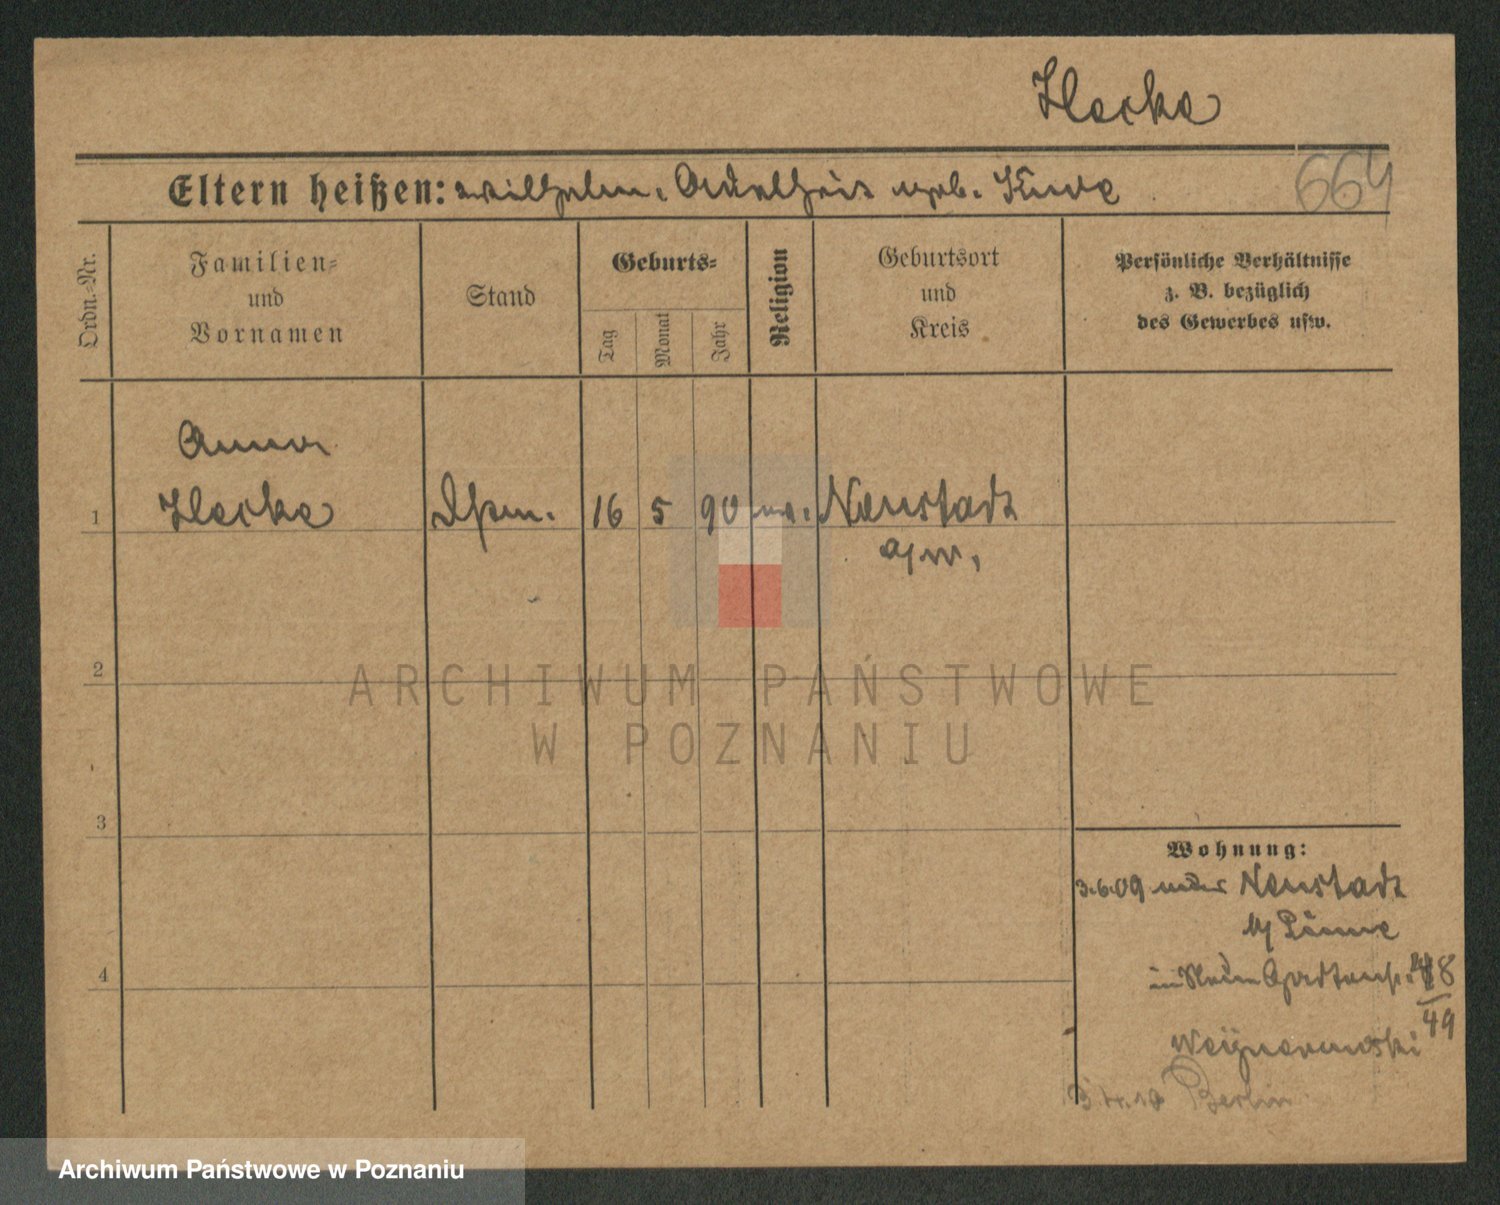 Hacke
664
Eltern heißen: Wilhelm. Adelheid geb.
Ordn.=Nr.
Familien=
und
Vornamen
Stand
Geburts=
Tag
Monat
Jahr
Religion
Geburtsort
und
Kreis
Persönliche Verhältnisse
z. B. bezüglich
des Gewerbes usw.
Anna
1 Hacke 16 5 90 Neustadt
a/W.
2
ARCHIWUM PAŃSTWOWE
W POZNANIU
3
Wohnung:
3.6.09 Neustadt
4
48
49
Berlin
Archiwum Państwowe w Poznaniu